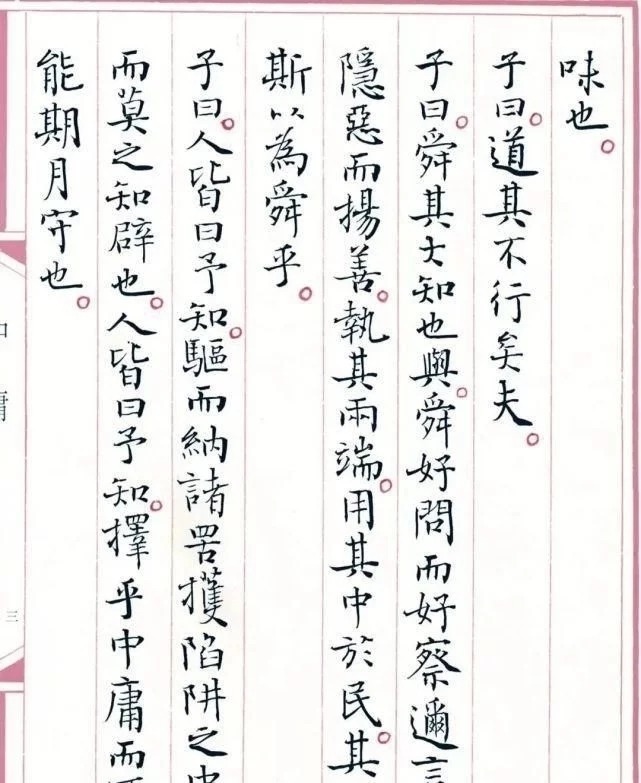 味也。
子曰。道其不行矣夫。
子曰。舜其大知也與。舜好問而好察邇言
隱惡而揚善。執其兩端。用其中於民。其
斯以為舜乎。
子曰。人皆曰予知。驅而納諸罟擭陷阱之中
而莫之知辟也。人皆曰予知。擇乎中庸而
能期月守也。
中庸
三